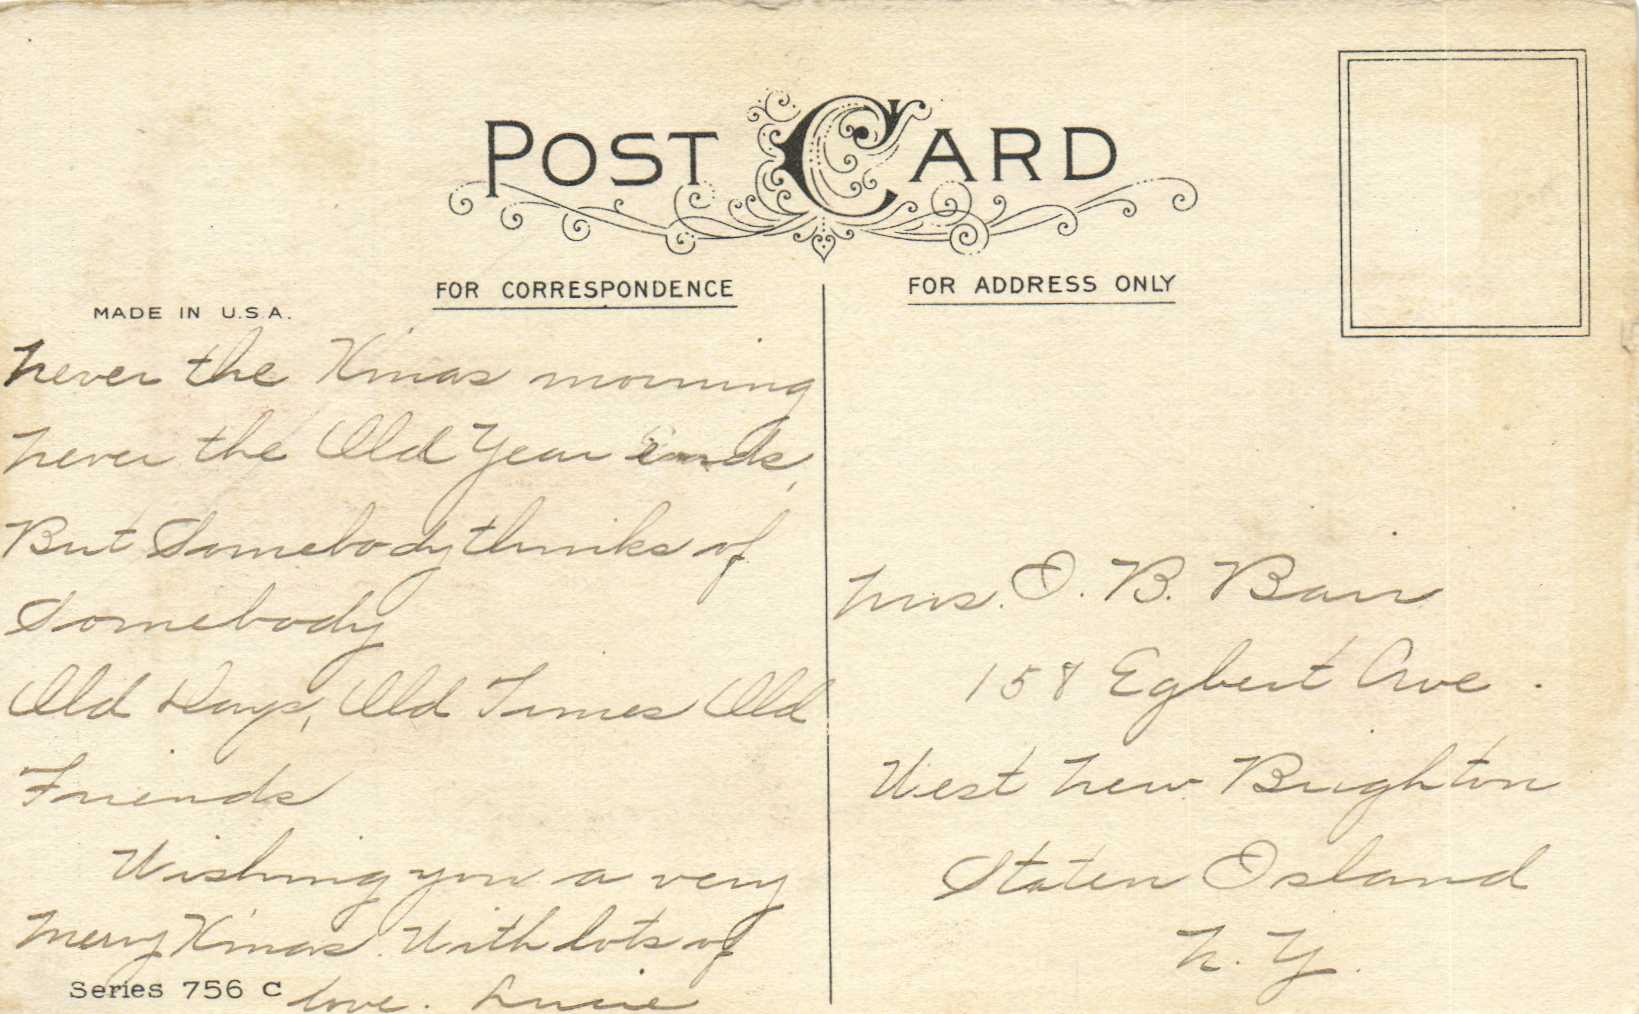 POST CARD
FOR CORRESPONDENCE
FOR ADDRESS ONLY
MADE IN U.S.A.
Never the Xmas morning
Never the Old Year Ends,
But Somebody thinks of
Somebody
Old Days, Old Times Old
Friends
Wishing you a very
Merry X'mas. With lots of
love. Lucie
Series 756 C
Mrs. O. B. Bair
158 Egbert Ave.
West New Brighton
Staten Island
N. Y.